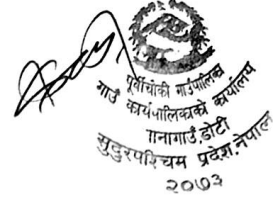 पूर्वीचौकी गाउँपालिका
गाउँ कार्यपालिकाको कार्यालय
गानागाउँ,डोटी
सुदुरपश्चिम प्रदेश,नेपाल
२०७३